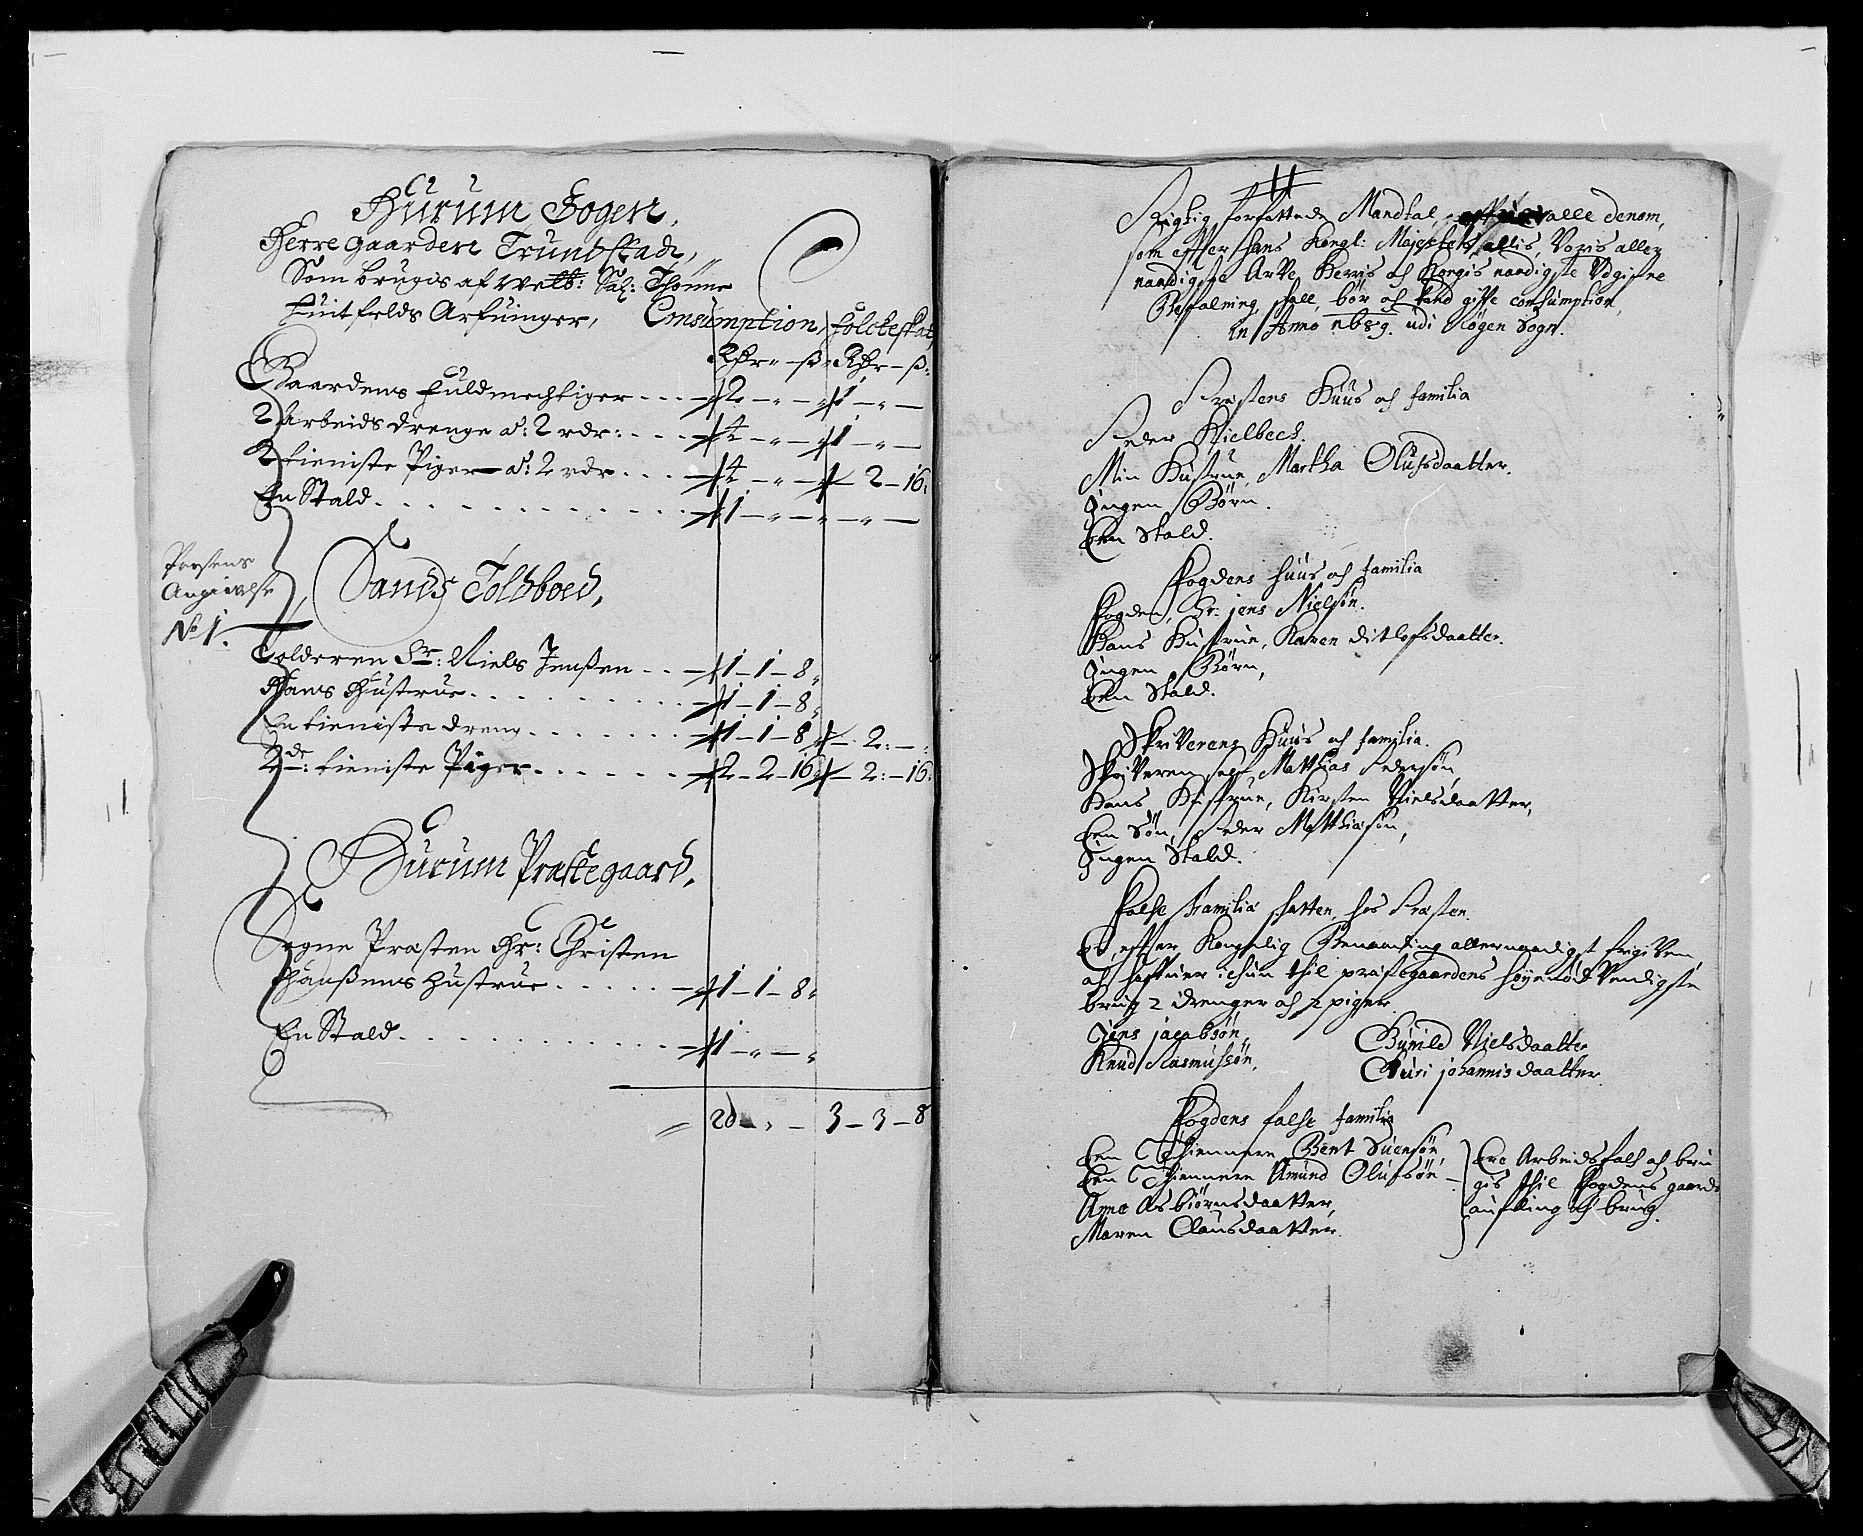 Hurum Sogen,
Herre gaarden Trundstad,
Som brugis af welb: Sal: Thønne
Huitfelds Arfuinger,
Consumption, Folckeskat,
Rdr - ß: Rdr - ß:
Gaardens fuldmechtiger - - - 2 - " - 1 - " -
2 Arbeids drenge á: 2 rdr: - - - 4 - " - 1 - " -
2 tieniste Piger á: 2 rdr - - - 4 - " - 2 - 16
En Stald. . . . . . . 1 - " - " - " -
Prestens
Angivelse
No 1.
Sands Toldboed,
Tolderen Sr: Niels Jenßen - - - 1 - 1 - 8
Hans Hustrue. . . . . . 1 - 1 - 8
En tieniste dreng. . . . . 1 - 1 - 8 - 2: -
2de: tieniste Piger. . . . . 2 - 2 - 16 - 2: - 16
Hurum Præstegaard,
Sogne Præsten Hr: Christen
Hanßens Hustrue. . . . . 1 - 1 - 8
En Stald. . . . . . . . 1 - " - "
3 - 3 - 8
Rigtig forfattede Mandtal, alle denom,
som effter Hans Kongl: Majestets allis, Voris aller
naadigste Arve Herris og Kongis naadigste Udgifne
Befalning, skall, bør och kand giffe consumption,
in Anno 1689. udi Røgen Sogn.
Præstens Huus och familia
Peder Kielbech.
Min Hustrue, Martha Olufsdaatter.
Ingen Børn.
Een Stald.
Fogdens huus och familia
Fogden, Sr: jens Nielsøn.
Hans Hustrue, Karen ditlofsdaatter.
Ingen Børn,
Een Stald.
Skriverens Huus och familia.
Skriveren self Matthias Pedersøn,
Hans Hustrue, Kirsten Nielsdaatter,
Een Søn, Peder Matthiasøn,
Ingen Stald.
Folche familia skatten, hos Præsten.
Er, effter Kongelig Benaading allernaadigst frigiven,
och hafver ichun thil præstegaardens høyenødvendigste
brug 2 drenger och 2 piger
Jens jacobsøn, Gunild Nielsdaatter
Knud Rasmussøn, Guri johannisdaatter.
Fogdens folche familia
Een Thiennere Bent Suensøn,
Een Thiennere Amund Olufsøn -
Anne Asbiørnsdaatter,
Maren Clausdaatter.
Ere Arbeidsfolch och bru
gis thil Fogdens gaards
aufling och brug.